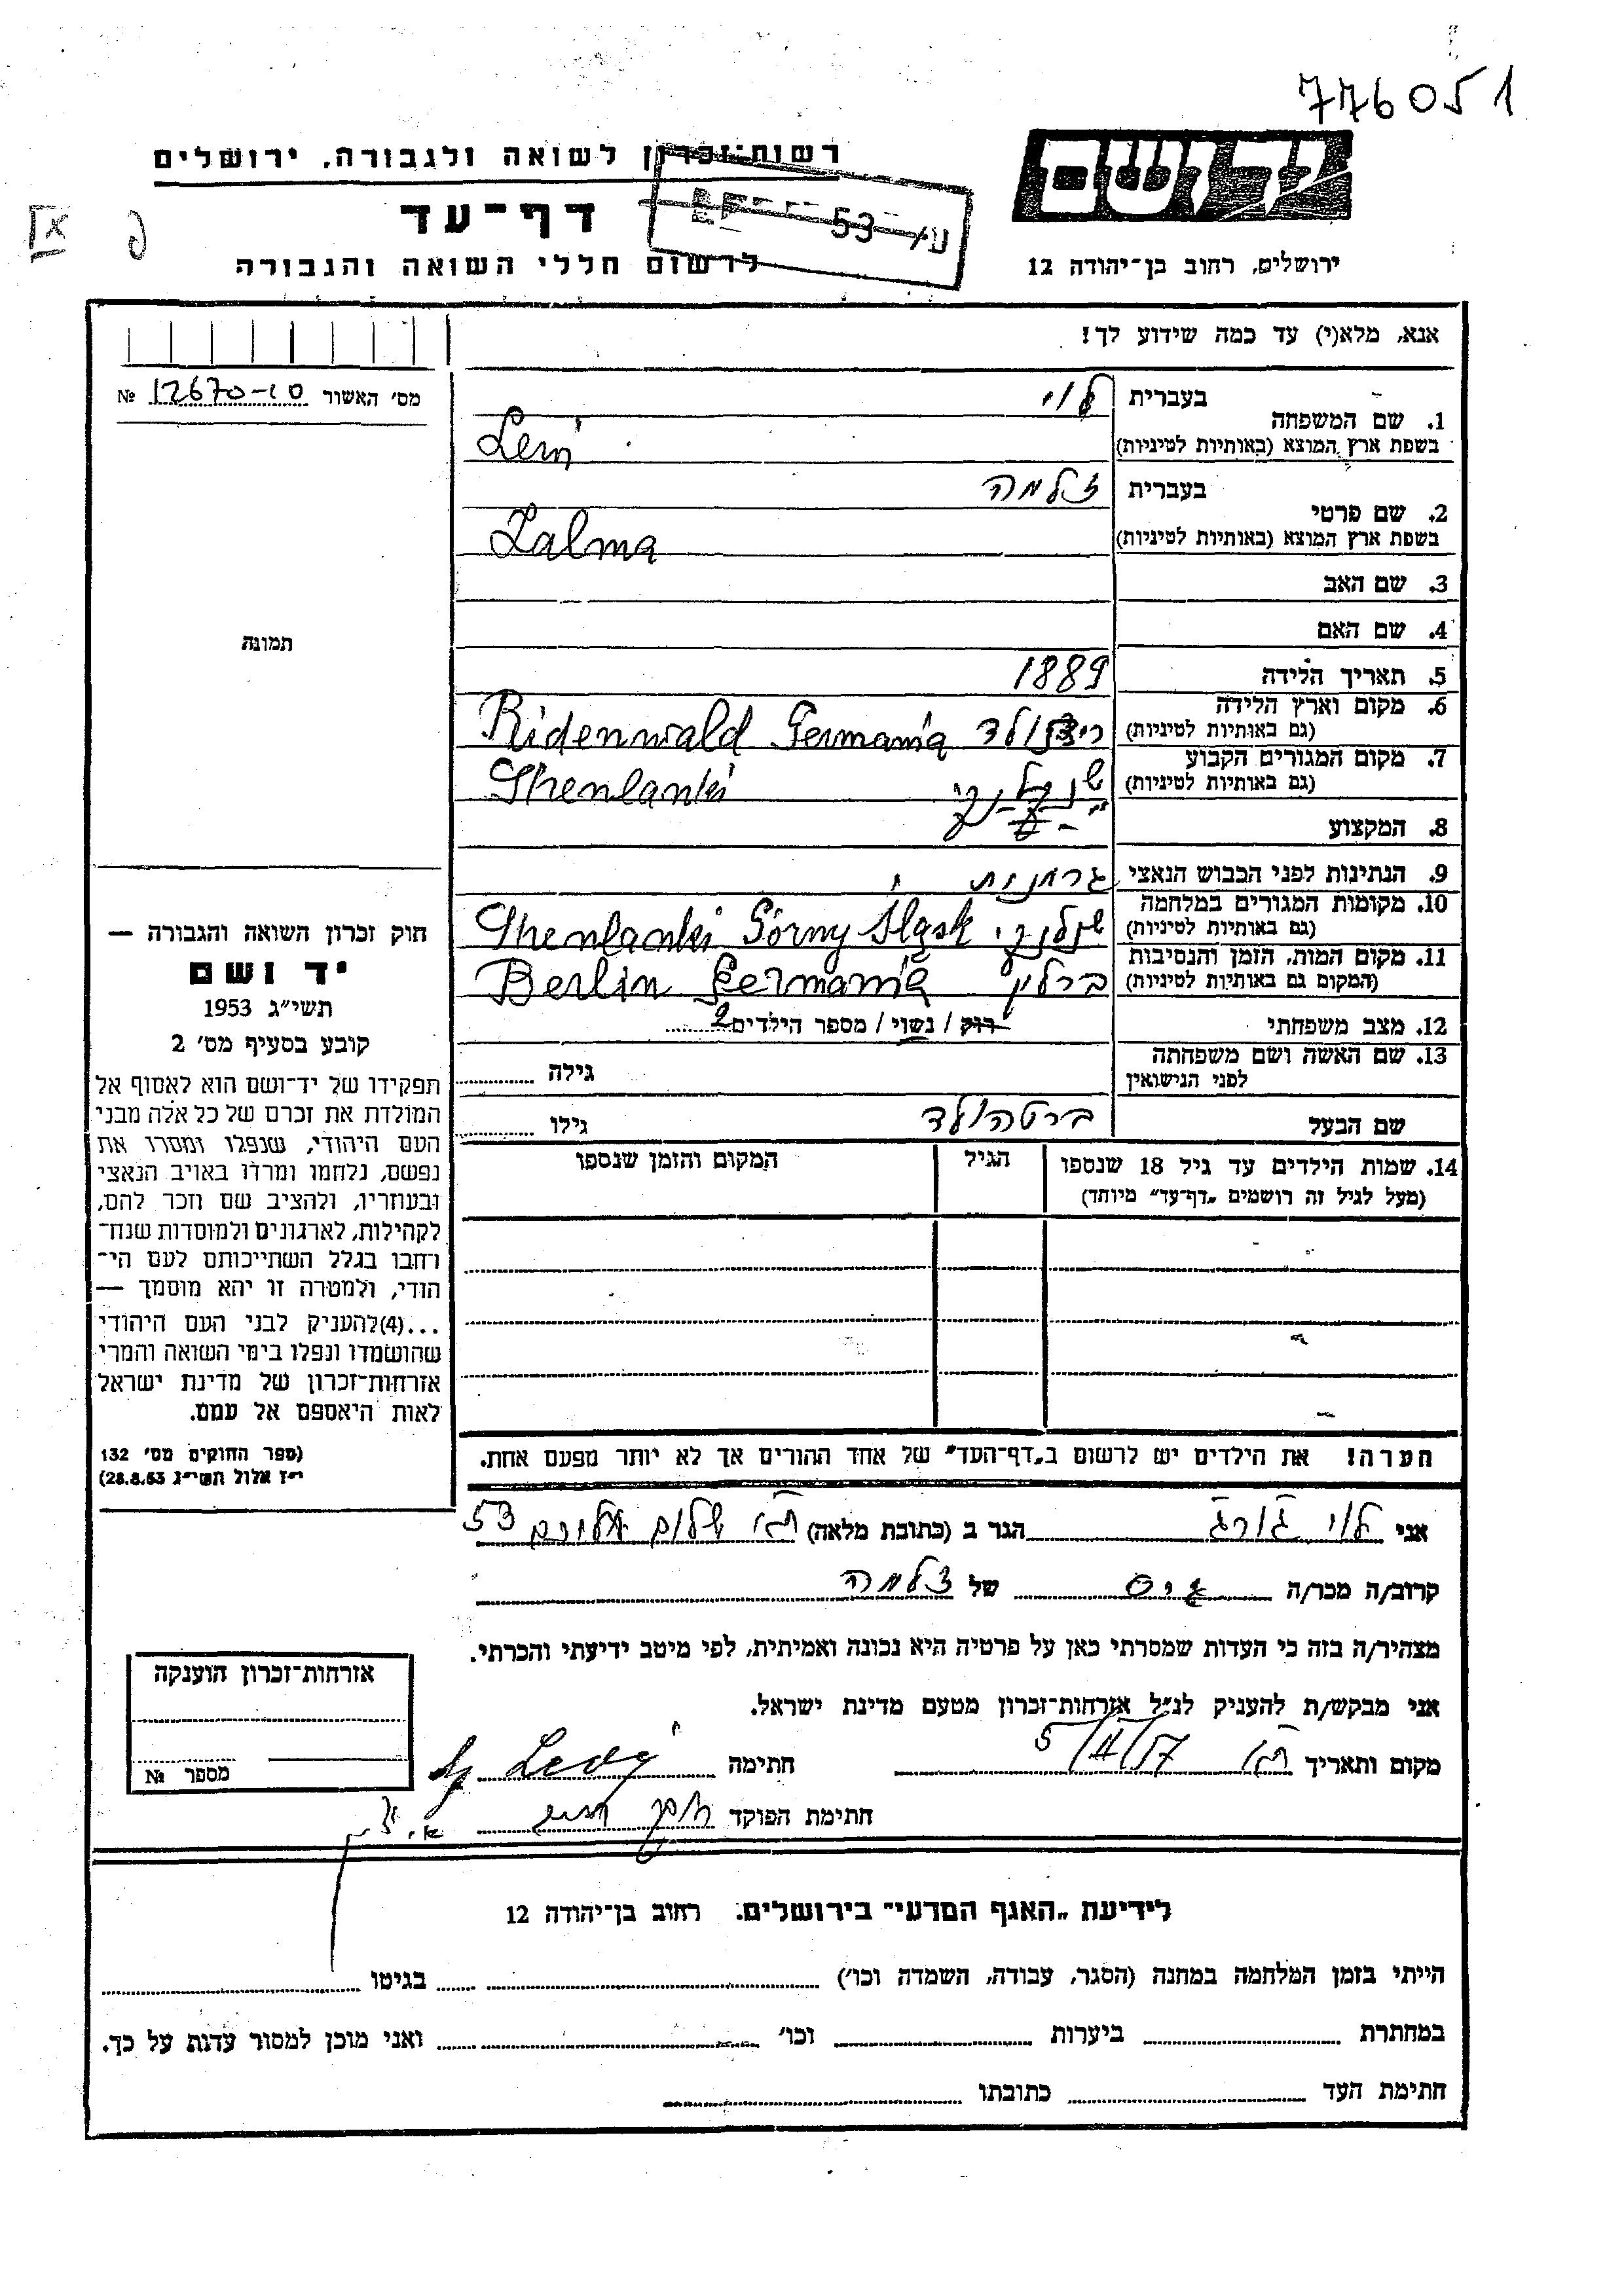 776051
רשות-זכרון לשואה ולגבורה, ירושלים
דף-עד
לרשום חללי השואה והגבורה
53
יד ושם
ירושלים, רחוב בן-יהודה 12
אנא, מלא(י) עד כמה שידוע לך!
מס' האשור 12670-10 №
1. שם המשפחה
בעברית לוי
בשפת ארץ המוצא (באותיות לטיניות)
2. שם פרטי
בעברית זלמה
בשפת ארץ המוצא (באותיות לטיניות) Zalma
3. שם האב
4. שם האם
5. תאריך הלידה 1889
6. מקום וארץ הלידה
(גם באותיות לטיניות) Ridenwald Germania
7. מקום המגורים הקבוע
(גם באותיות לטיניות) Shenlanki
8. המקצוע
9. הנתינות לפני הכבוש הנאצי גרמנית
10. מקומות המגורים במלחמה
(גם באותיות לטיניות) שנלנקי Shenlanki Górny Śląsk
11. מקום המות, הזמן והנסיבות
(המקום גם באותיות לטיניות) ברלין Berlin Germania
12. מצב משפחתי רוק / נשוי / מספר הילדים 2
13. שם האשה ושם משפחתה
לפני הנישואין
גילה
שם הבעל ברטהולד גילו
14. שמות הילדים עד גיל 18 שנספו
(מעל לגיל זה רושמים „דף-עד" מיוחד)
הגיל
המקום והזמן שנספו
הערה! את הילדים יש לרשום ב„דף-העד" של אחד ההורים אך לא יותר מפעם אחת.
תמונה
חוק זכרון השואה והגבורה —
יד ושם
תשי"ג 1953
קובע בסעיף מס' 2
תפקידו של יד-ושם הוא לאסוף אל
המולדת את זכרם של כל אלה מבני
העם היהודי, שנפלו ומסרו את
נפשם, נלחמו ומרדו באויב הנאצי
ובעוזריו, ולהציב שם וזכר להם,
לקהילות, לארגונים ולמוסדות שנח-
רחבו בגלל השתייכותם לעם הי-
הודי, ולמטרה זו יהא מוסמך —
...(4)להעניק לבני העם היהודי
שהושמדו ונפלו בימי השואה והמרי
אזרחות-זכרון של מדינת ישראל
לאות היאספם אל עמם.
(ספר החוקים מס' 132
י"ז אלול תשי"ג 28.8.53)
אני לוי גורג הגר ב (כתובת מלאה) ת"א שלום עליכם 53
קרוב/ה מכר/ה גיס של זלמה
מצהיר/ה בזה כי העדות שמסרתי כאן על פרטיה היא נכונה ואמיתית, לפי מיטב ידיעתי והכרתי.
אני מבקש/ת להעניק לנ"ל אזרחות-זכרון מטעם מדינת ישראל.
מקום ותאריך ת"א חתימה Levy
חתימת הפוקד
אזרחות-זכרון הוענקה
מספר №
לידיעת „האגף המדעי" בירושלים. רחוב בן-יהודה 12
הייתי בזמן המלחמה במחנה (הסגר, עבודה, השמדה וכו') בגיטו
במחתרת ביערות וכו' ואני מוכן למסור עדות על כך.
חתימת העד כתובתו